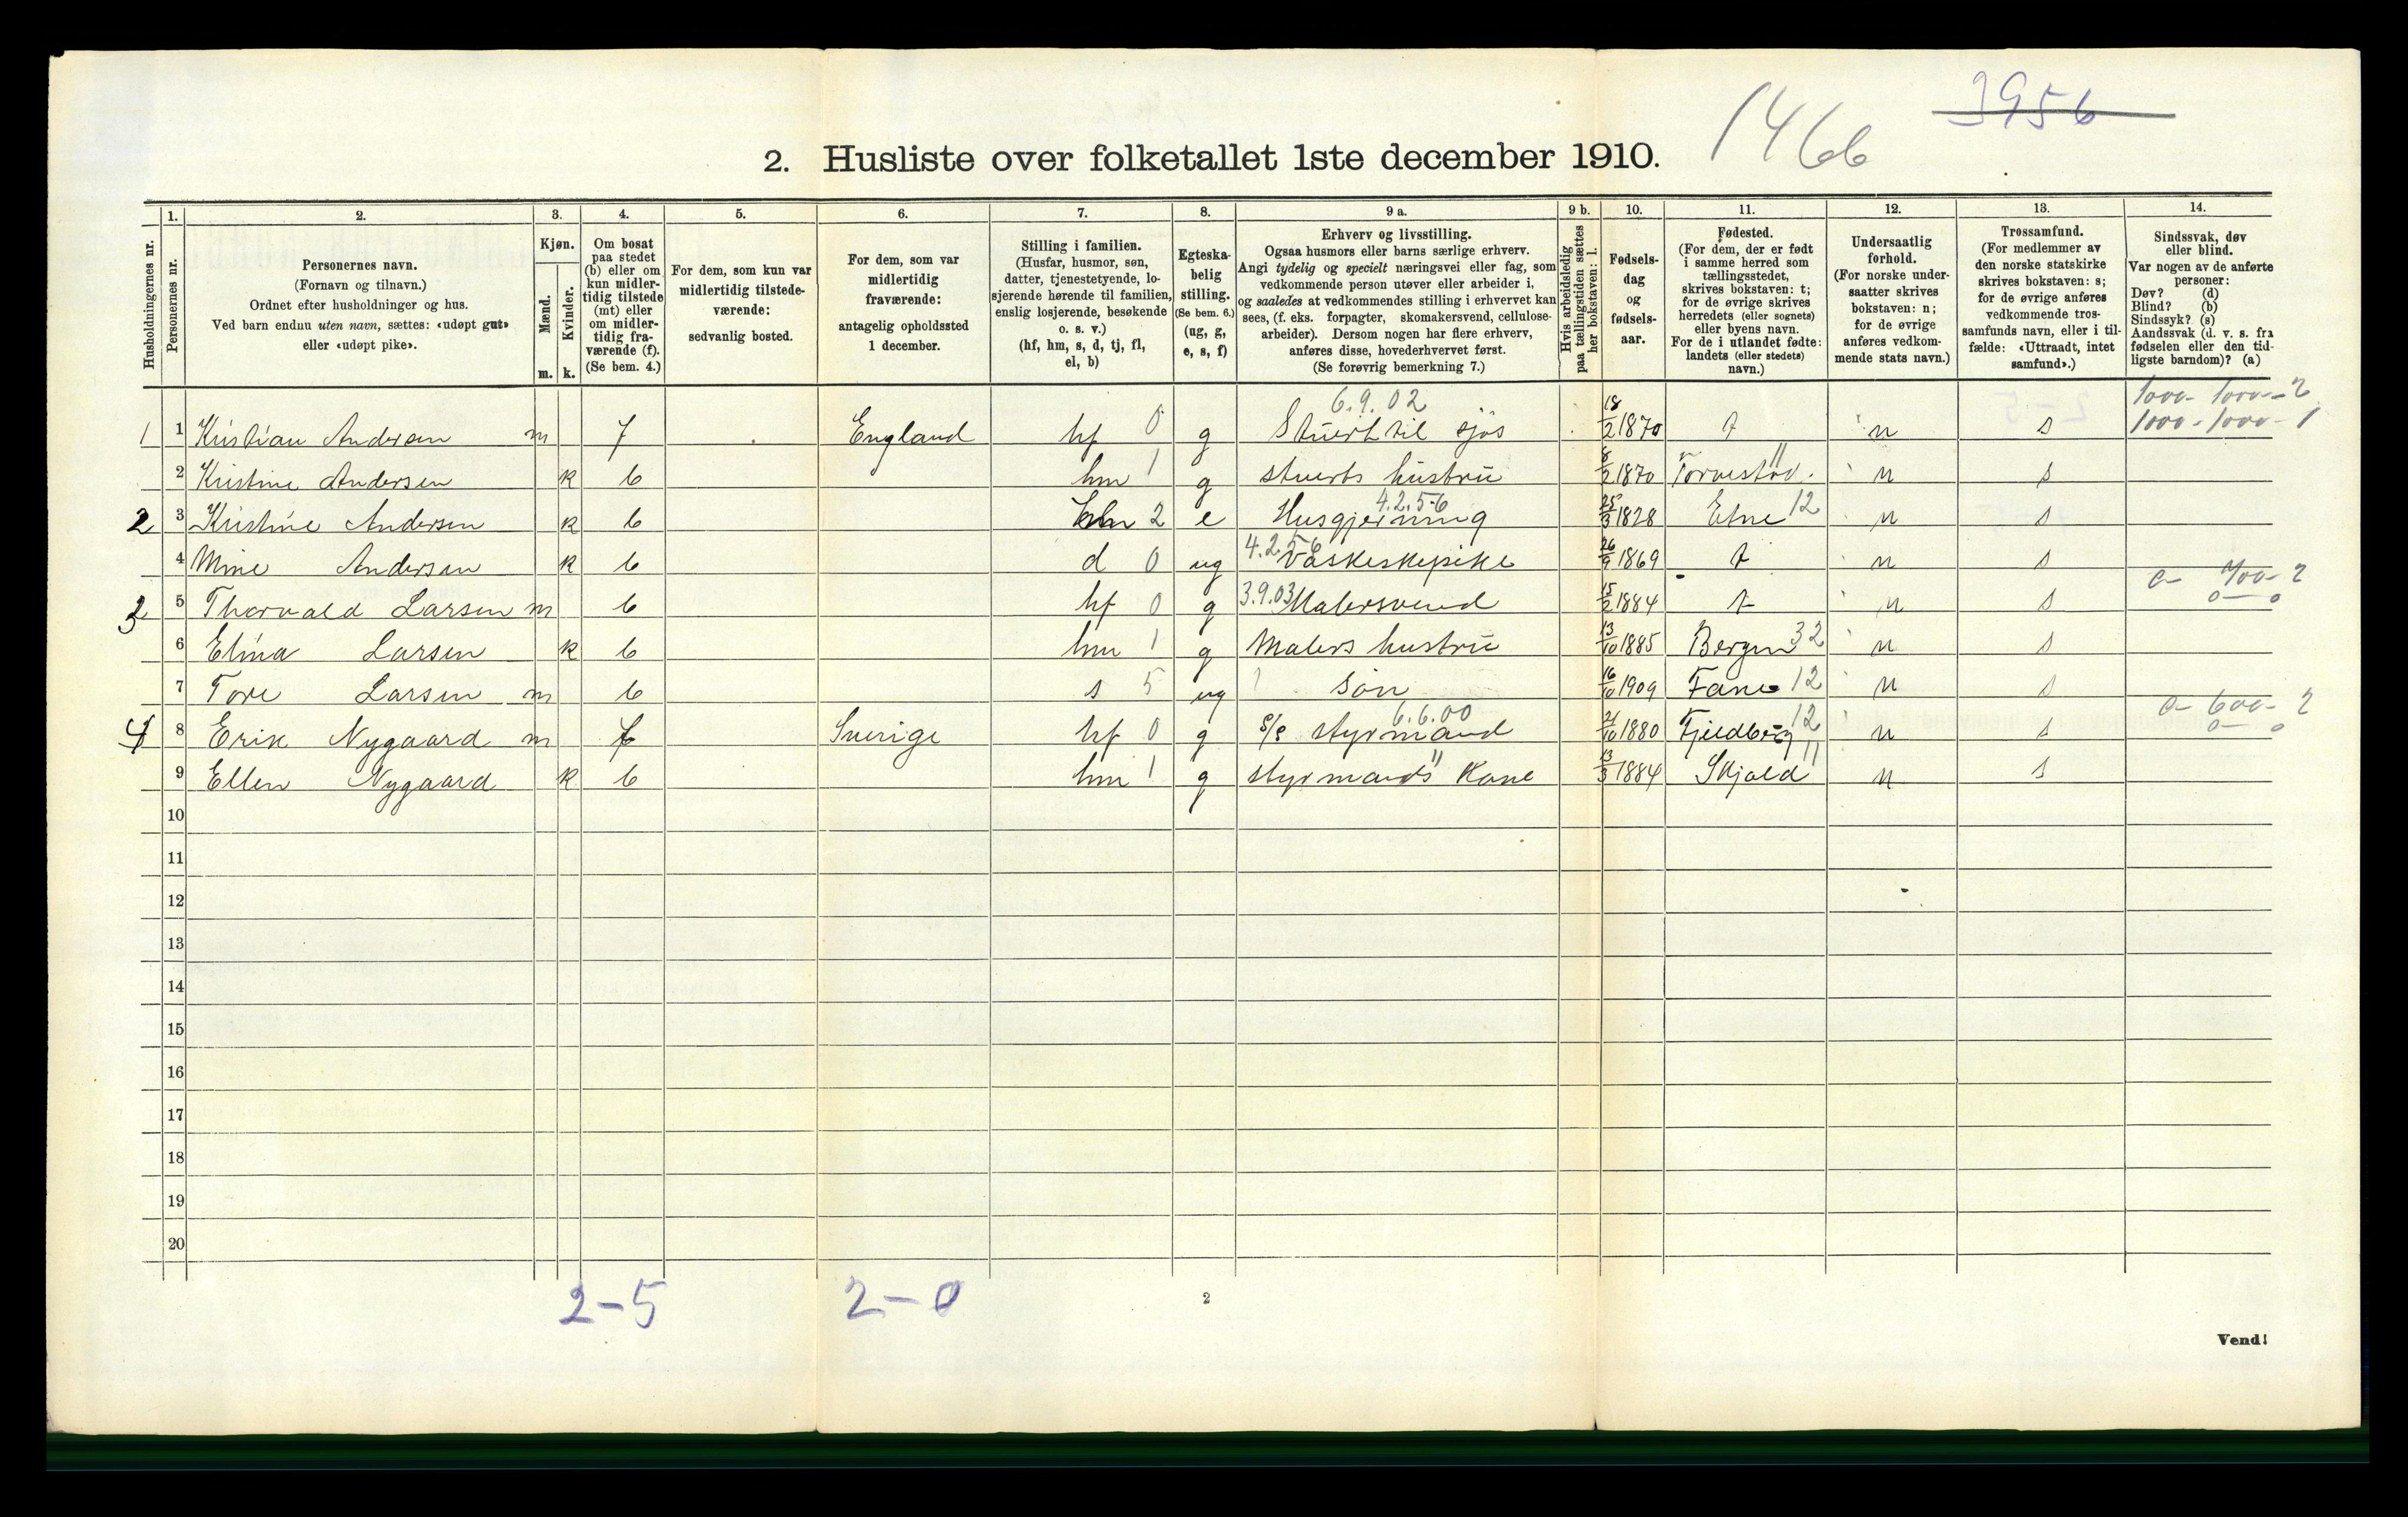 3956
1466
2. Husliste over folketallet 1ste december 1910.
Husholdningernes nr.
1. Personernes nr.
2. Personernes navn. (Fornavn og tilnavn.) Ordnet efter husholdninger og hus. Ved barn endnu uten navn, sættes: «udøpt gut» eller «udøpt pike».
3. Kjøn. Mænd. m. Kvinder. k.
4. Om bosat paa stedet (b) eller om kun midlertidig tilstede (mt) eller om midlertidig fraværende (f). (Se bem. 4.)
5. For dem, som kun var midlertidig tilstedeværende: sedvanlig bosted.
6. For dem, som var midlertidig fraværende: antagelig opholdssted 1 december.
7. Stilling i familien. (Husfar, husmor, søn, datter, tjenestetyende, losjerende hørende til familien, enslig losjerende, besøkende o. s. v.) (hf, hm, s, d, tj, fl, el, b)
8. Egteskabelig stilling. (Se bem. 6.) (ug, g, e, s, f)
9 a. Erhverv og livsstilling. Ogsaa husmors eller barns særlige erhverv. Angi tydelig og specielt næringsvei eller fag, som vedkommende person utøver eller arbeider i, og saaledes at vedkommendes stilling i erhvervet kan sees, (f. eks. forpagter, skomakersvend, cellulosearbeider). Dersom nogen har flere erhverv, anføres disse, hovederhvervet først. (Se forøvrig bemerkning 7.)
9 b. Hvis arbeidsledig paa tællingstiden sættes her bokstaven: l.
10. Fødselsdag og fødselsaar.
11. Fødested. (For dem, der er født i samme herred som tællingsstedet, skrives bokstaven: t; for de øvrige skrives herredets (eller sognets) eller byens navn. For de i utlandet fødte: landets (eller stedets) navn.)
12. Undersaatlig forhold. (For norske undersaatter skrives bokstaven: n; for de øvrige anføres vedkommende stats navn.)
13. Trossamfund. (For medlemmer av den norske statskirke skrives bokstaven: s; for de øvrige anføres vedkommende trossamfunds navn, eller i tilfælde: «Uttraadt, intet samfund».)
14. Sindssvak, døv eller blind. Var nogen av de anførte personer: Døv? (d) Blind? (b) Sindssyk? (s) Aandssvak (d. v. s. fra fødselen eller den tidligste barndom)? (a)
6.9.02 1000 - 1000 - 2
1 1 Kristian Andersen m f England hf 0 g Stuert til sjøs 18/2 1870 t n s 1000 - 1000 - 1
2 Kristine Andersen k b hm 1 g stuerts hustru 8/2 1870 Torvestad 11 n s
4.2.56
2 3 Kristine Andersen k b hm 2 e Husgjerning 25/3 1828 Etne 12 n s
4 Mine Andersen k b d 0 ug 4.2.56 Vaskeskepike 26/9 1869 t n s
0 - 700 - 2
3 5 Thorvald Larsen m b hf 0 g 3.9.03 Malersvend 15/2 1884 t n s 0 - 0
6 Elina Larsen k b hm 1 g Malers hustru 13/10 1885 Bergen 32 n s
7 Tore Larsen m b s 5 ug søn 16/10 1909 Fane 12 n s
6.6.00 0 - 600 - 2
4 8 Erik Nygaard m f Sverige hf 0 g S/S styrmand 21/10 1880 Fjeldberg 12 n s 0 - 0
9 Ellen Nygaard k b hm 1 g styrmands Kone 13/3 1884 Skjold 11 n s
10
11
12
13
14
15
16
17
18
19
20
2-5 2-0
2
Vend!